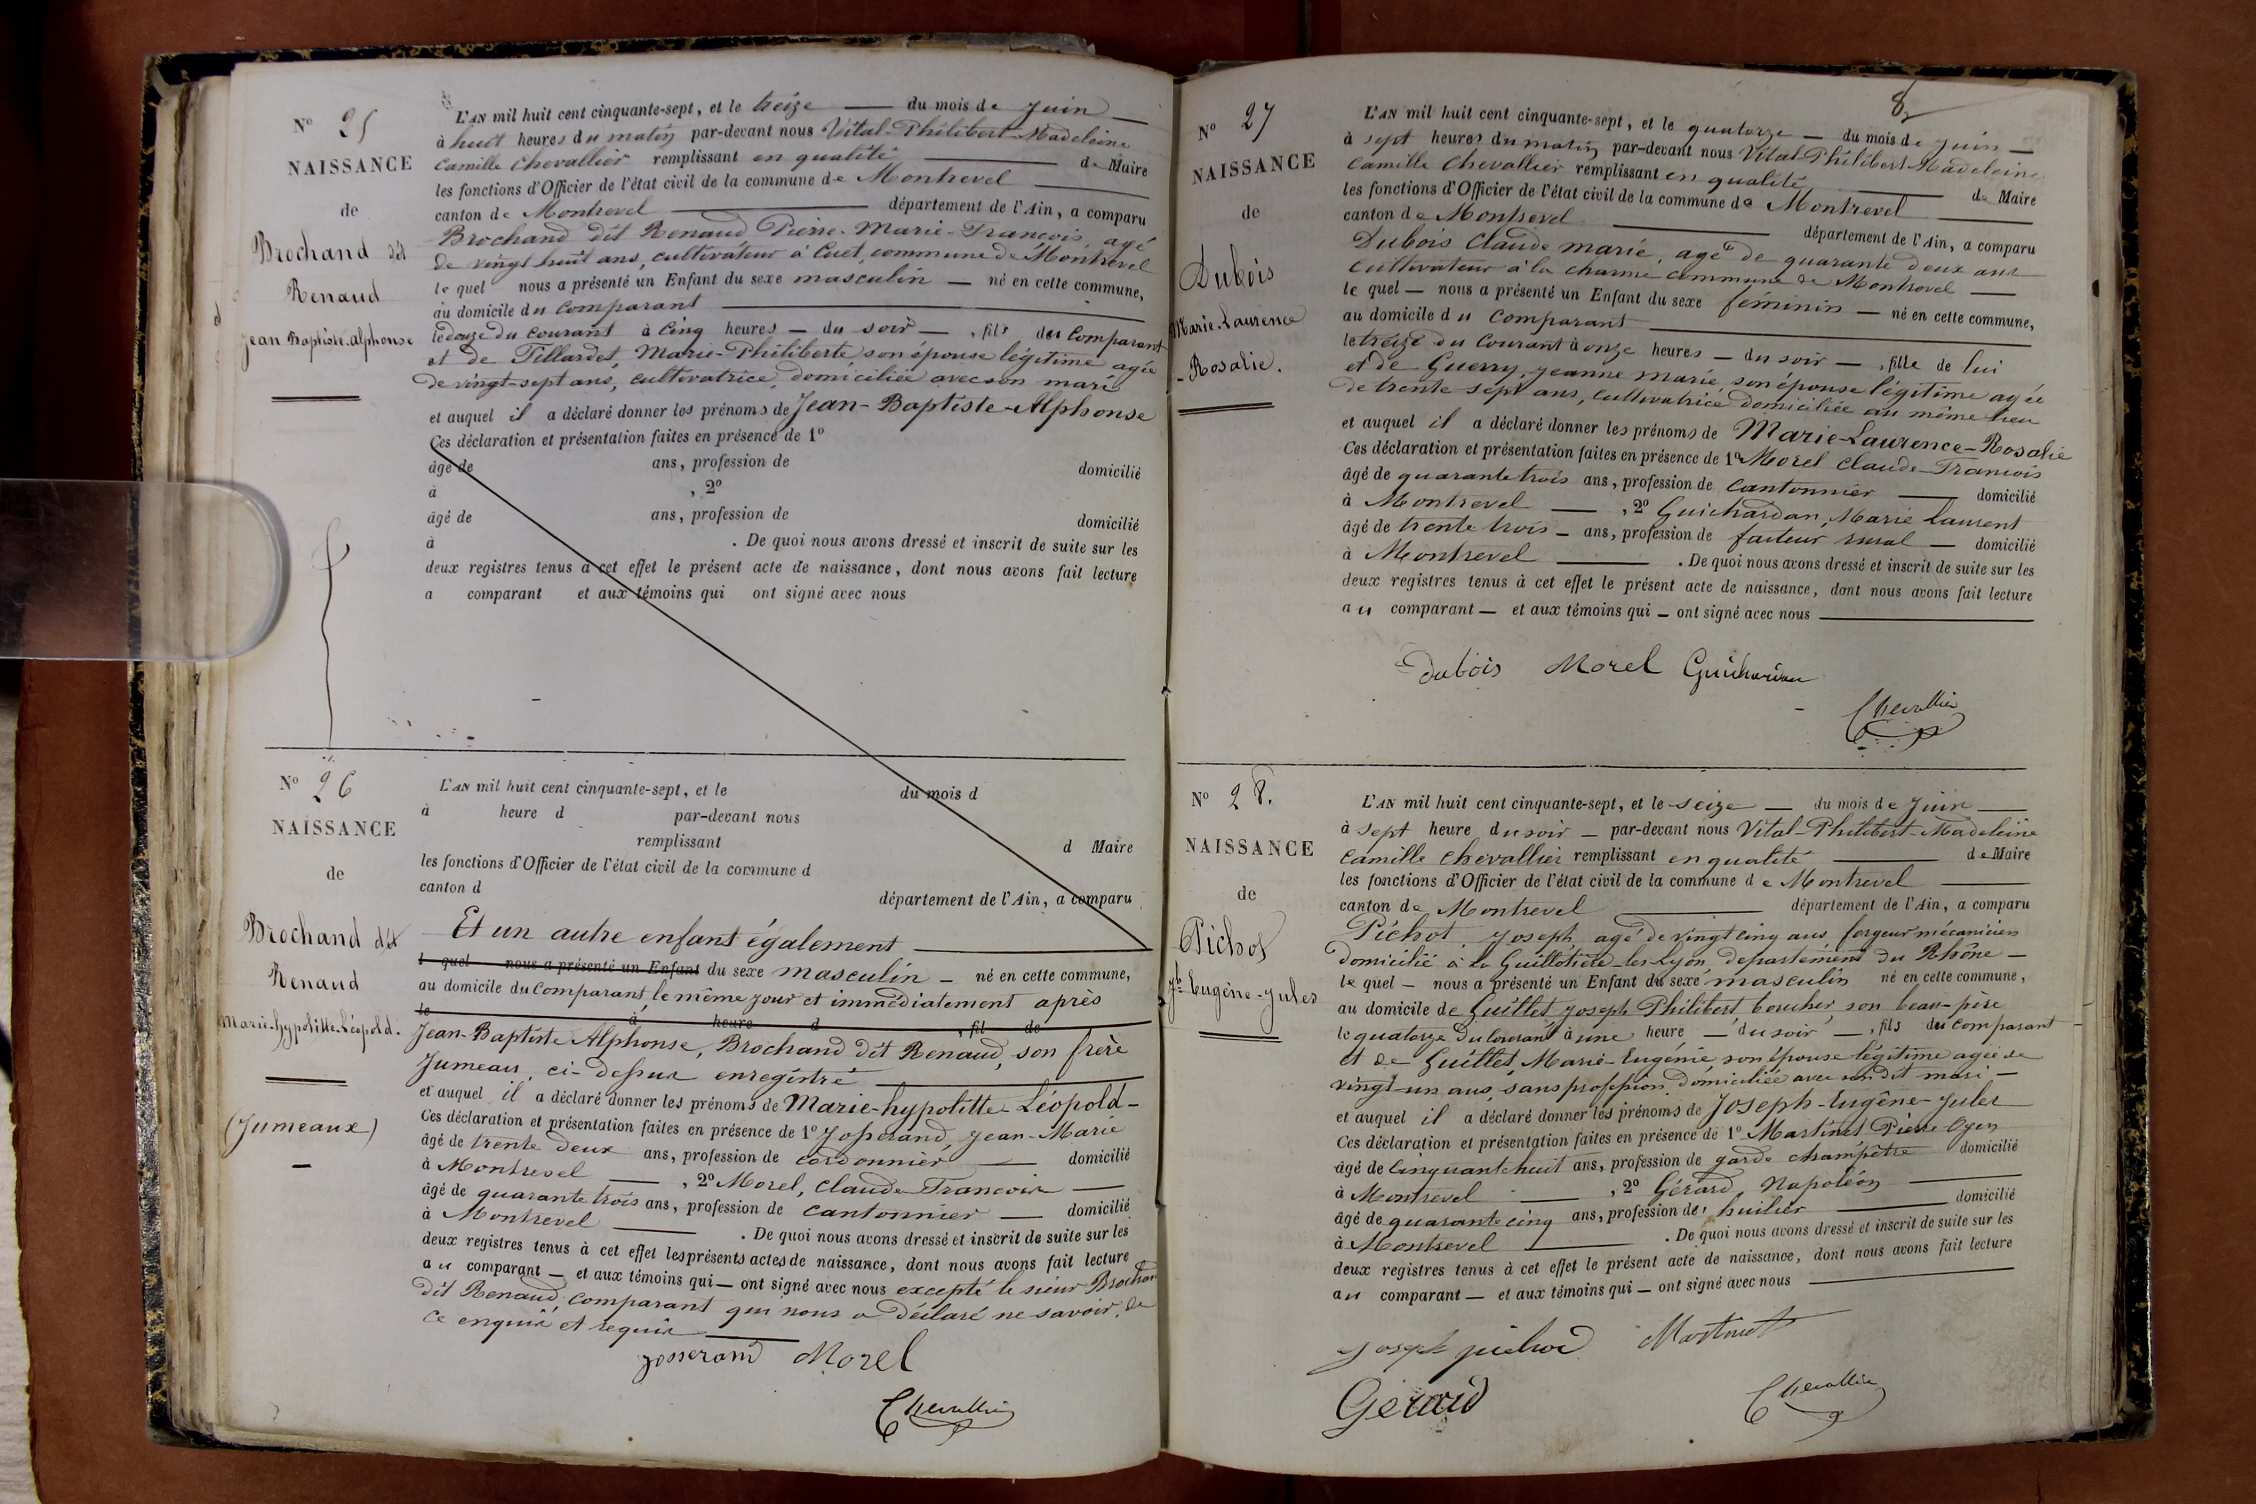 Nº 25
NAISSANCE
de
Brochand dit
Renaud
Jean Baptiste-Alphonse
L'AN mil huit cent cinquante-sept, et le treize — du mois de Juin —
à huit heures du matin par-devant nous Vital-Philibert-Madeleine
Camille Chevallier remplissant en qualité — de Maire
les fonctions d'Officier de l'état civil de la commune de Montrevel —
canton de Montrevel — département de l'Ain, a comparu
Brochand dit Renaud Pierre-Marie-François, agé
de vingt huit ans, cultivateur à Cuet, commune de Montrevel
le quel nous a présenté un Enfant du sexe masculin — né en cette commune,
au domicile du Comparant —
le douze du courant à cinq heures — du soir —, fils du Comparant
et de Tillardet, Marie-Philiberte son épouse légitime agée
de vingt-sept ans, cultivatrice, domiciliée avec son mari
et auquel il a déclaré donner les prénoms de Jean-Baptiste-Alphonse
Ces déclaration et présentation faites en présence de 1º
âgé de ans, profession de domicilié
à , 2º
âgé de ans, profession de domicilié
à . De quoi nous avons dressé et inscrit de suite sur les
deux registres tenus à cet effet le présent acte de naissance, dont nous avons fait lecture
a comparant et aux témoins qui ont signé avec nous
Nº 26
NAISSANCE
de
Brochand dit
Renaud
Marie-hypolitte-Léopold.
(Jumeaux)
L'AN mil huit cent cinquante-sept, et le du mois d
à heure d par-devant nous
remplissant d Maire
les fonctions d'Officier de l'état civil de la commune d
canton d département de l'Ain, a comparu
Et un autre enfant également —
l quel nous a présenté un Enfant du sexe masculin — né en cette commune,
au domicile du Comparant le même jour et immédiatement après
le à heure d , fil de
Jean-Baptiste Alphonse, Brochand dit Renaud, son frère
Jumeau, ci-dessus enregistré —
et auquel il a déclaré donner les prénoms de Marie-hypolitte-Léopold-
Ces déclaration et présentation faites en présence de 1º Josserand, Jean-Marie
âgé de trente deux ans, profession de cordonnier — domicilié
à Montrevel —, 2º Morel, Claude François —
âgé de quarante trois ans, profession de cantonnier — domicilié
à Montrevel — . De quoi nous avons dressé et inscrit de suite sur les
deux registres tenus à cet effet les présents actes de naissance, dont nous avons fait lecture
au comparant — et aux témoins qui — ont signé avec nous excepté le sieur Brochand
dit Renaud, comparant qui nous a déclaré ne savoir, de
ce enquis et requis —
Josserand Morel
Chevallier
8
Nº 27
NAISSANCE
de
Dubois
Marie-Laurence
-Rosalie.
L'AN mil huit cent cinquante-sept, et le quatorze — du mois de juin —
à sept heures du matin par-devant nous Vital-Philibert-Madeleine
Camille Chevallier remplissant en qualité — de Maire
les fonctions d'Officier de l'état civil de la commune de Montrevel —
canton de Montrevel — département de l'Ain, a comparu
Dubois Claude marie, agé de quarante deux ans
cultivateur à la charme commune de Montrevel —
le quel — nous a présenté un Enfant du sexe féminin — né en cette commune,
au domicile du Comparant —
le treize du Courant à onze heures — du soir —, fille de lui
et de Guerry, Jeanne marie, son épouse légitime agée
de trente sept ans, cultivatrice domiciliée au même lieu
et auquel il a déclaré donner les prénoms de Marie-Laurence-Rosalie
Ces déclaration et présentation faites en présence de 1º Morel Claude-François
âgé de quarante trois ans, profession de cantonnier — domicilié
à Montrevel —, 2º Guichardan, Marie Laurent
âgé de trente trois — ans, profession de facteur rural — domicilié
à Montrevel — . De quoi nous avons dressé et inscrit de suite sur les
deux registres tenus à cet effet le présent acte de naissance, dont nous avons fait lecture
au comparant — et aux témoins qui — ont signé avec nous —
Dubois Morel Guichardan
Chevallier
Nº 28.
NAISSANCE
de
Pichot
Jh-Eugène-Jules
L'AN mil huit cent cinquante-sept, et le seize — du mois de Juin —
à sept heure du soir — par-devant nous Vital-Philibert-Madeleine
Camille Chevallier remplissant en qualité — de Maire
les fonctions d'Officier de l'état civil de la commune de Montrevel —
canton de Montrevel — département de l'Ain, a comparu
Pichot, Joseph agé de vingt cinq ans forgeur mécanicien
domicilié à la Guillotière-les-Lyon, département du Rhône —
le quel — nous a présenté un Enfant du sexe masculin né en cette commune,
au domicile de Guillet, Joseph Philibert, boucher, son beau-père
le quatorze du courant à une heure — du soir —, fils du Comparant
et de Guillet, Marie-Eugénie son épouse légitime agée de
vingt-un ans, sans profession, domiciliée avec son dit mari —
et auquel il a déclaré donner les prénoms de Joseph-Eugène-Jules
Ces déclaration et présentation faites en présence de 1º Martinet Pierre Oyen
âgé de cinquante huit ans, profession de garde champêtre domicilié
à Montrevel —, 2º Gérard Napoléon —
âgé de quarante cinq ans, profession de huilier — domicilié
à Montrevel — . De quoi nous avons dressé et inscrit de suite sur les
deux registres tenus à cet effet le présent acte de naissance, dont nous avons fait lecture
au comparant — et aux témoins qui — ont signé avec nous —
Joseph pichot Martinet
Gérard Chevallier